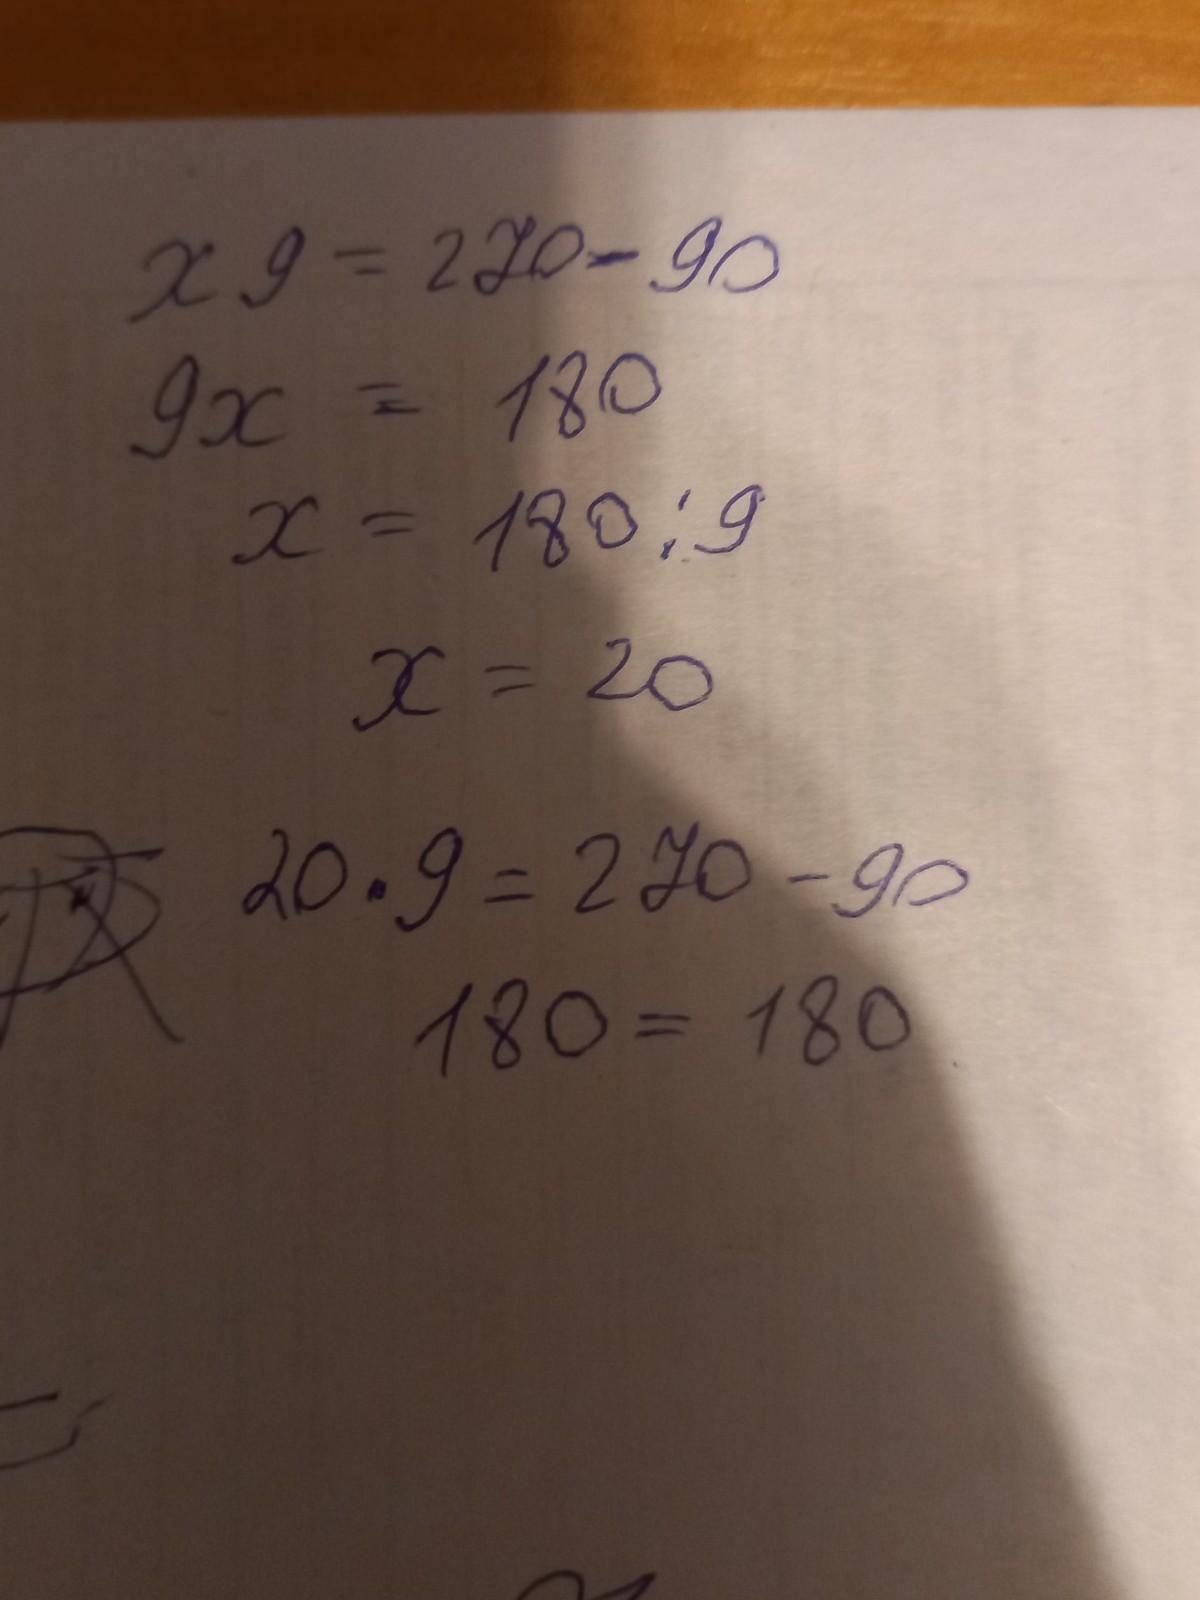 x 9 = 270 - 90
9x = 180
x = 180 : 9
x = 20
20 · 9 = 270 - 90
180 = 180